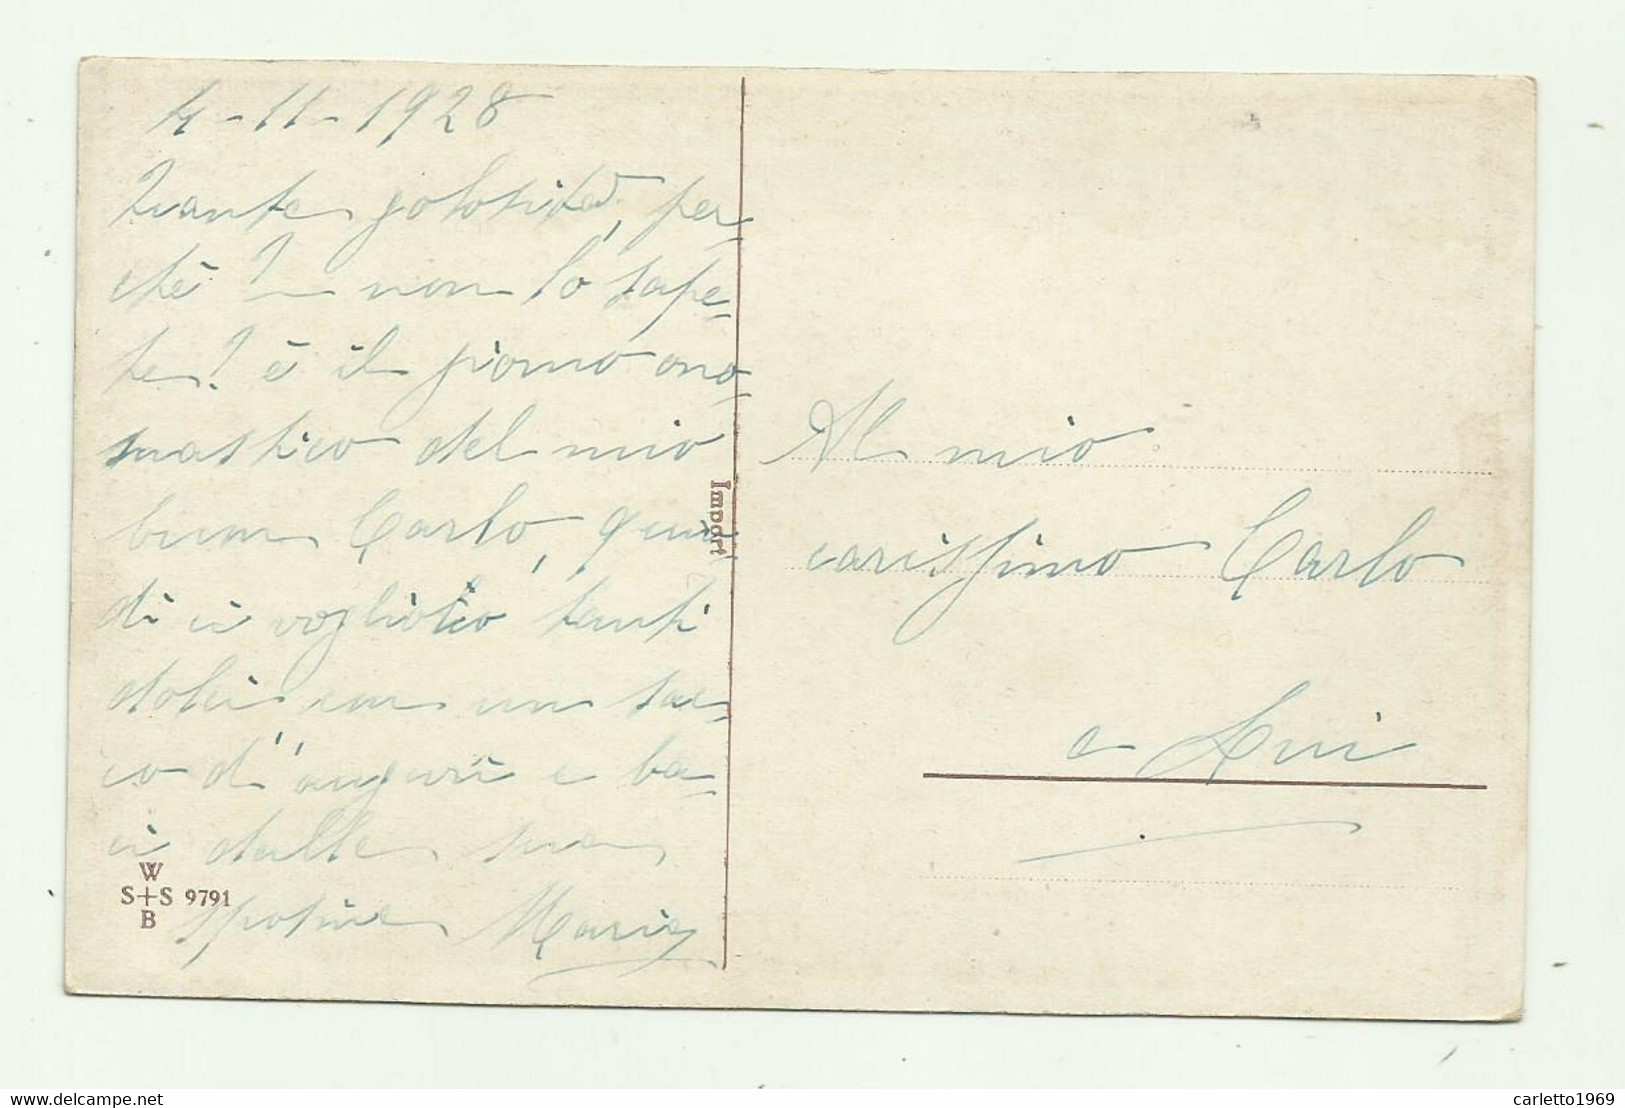 4-11-1928
Quante golosità, per-
chè? non lo sape-
te? è il giorno ono-
mastico del mio
buon Carlo, quin-
di ci vogliono tanti
dolci con un sac-
co d'auguri e ba-
ci dalla sua
sposina Maria
W
S+S 9791
B
Import
Al mio
carissimo Carlo
a Lui
carletto1969
www.delcampe.net